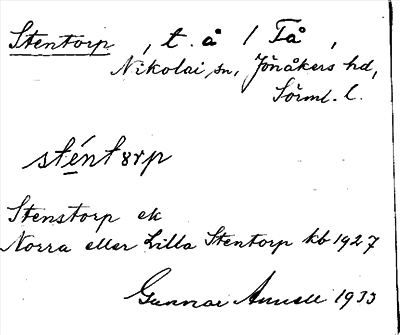 Stentorp, t. å / Tå,
Nikolai sn, Jönåkers hd,
Sörml. l.
sténtørp
Stenstorp ek
Norra eller Lilla Stentorp kb 1927
Gunnar 1933